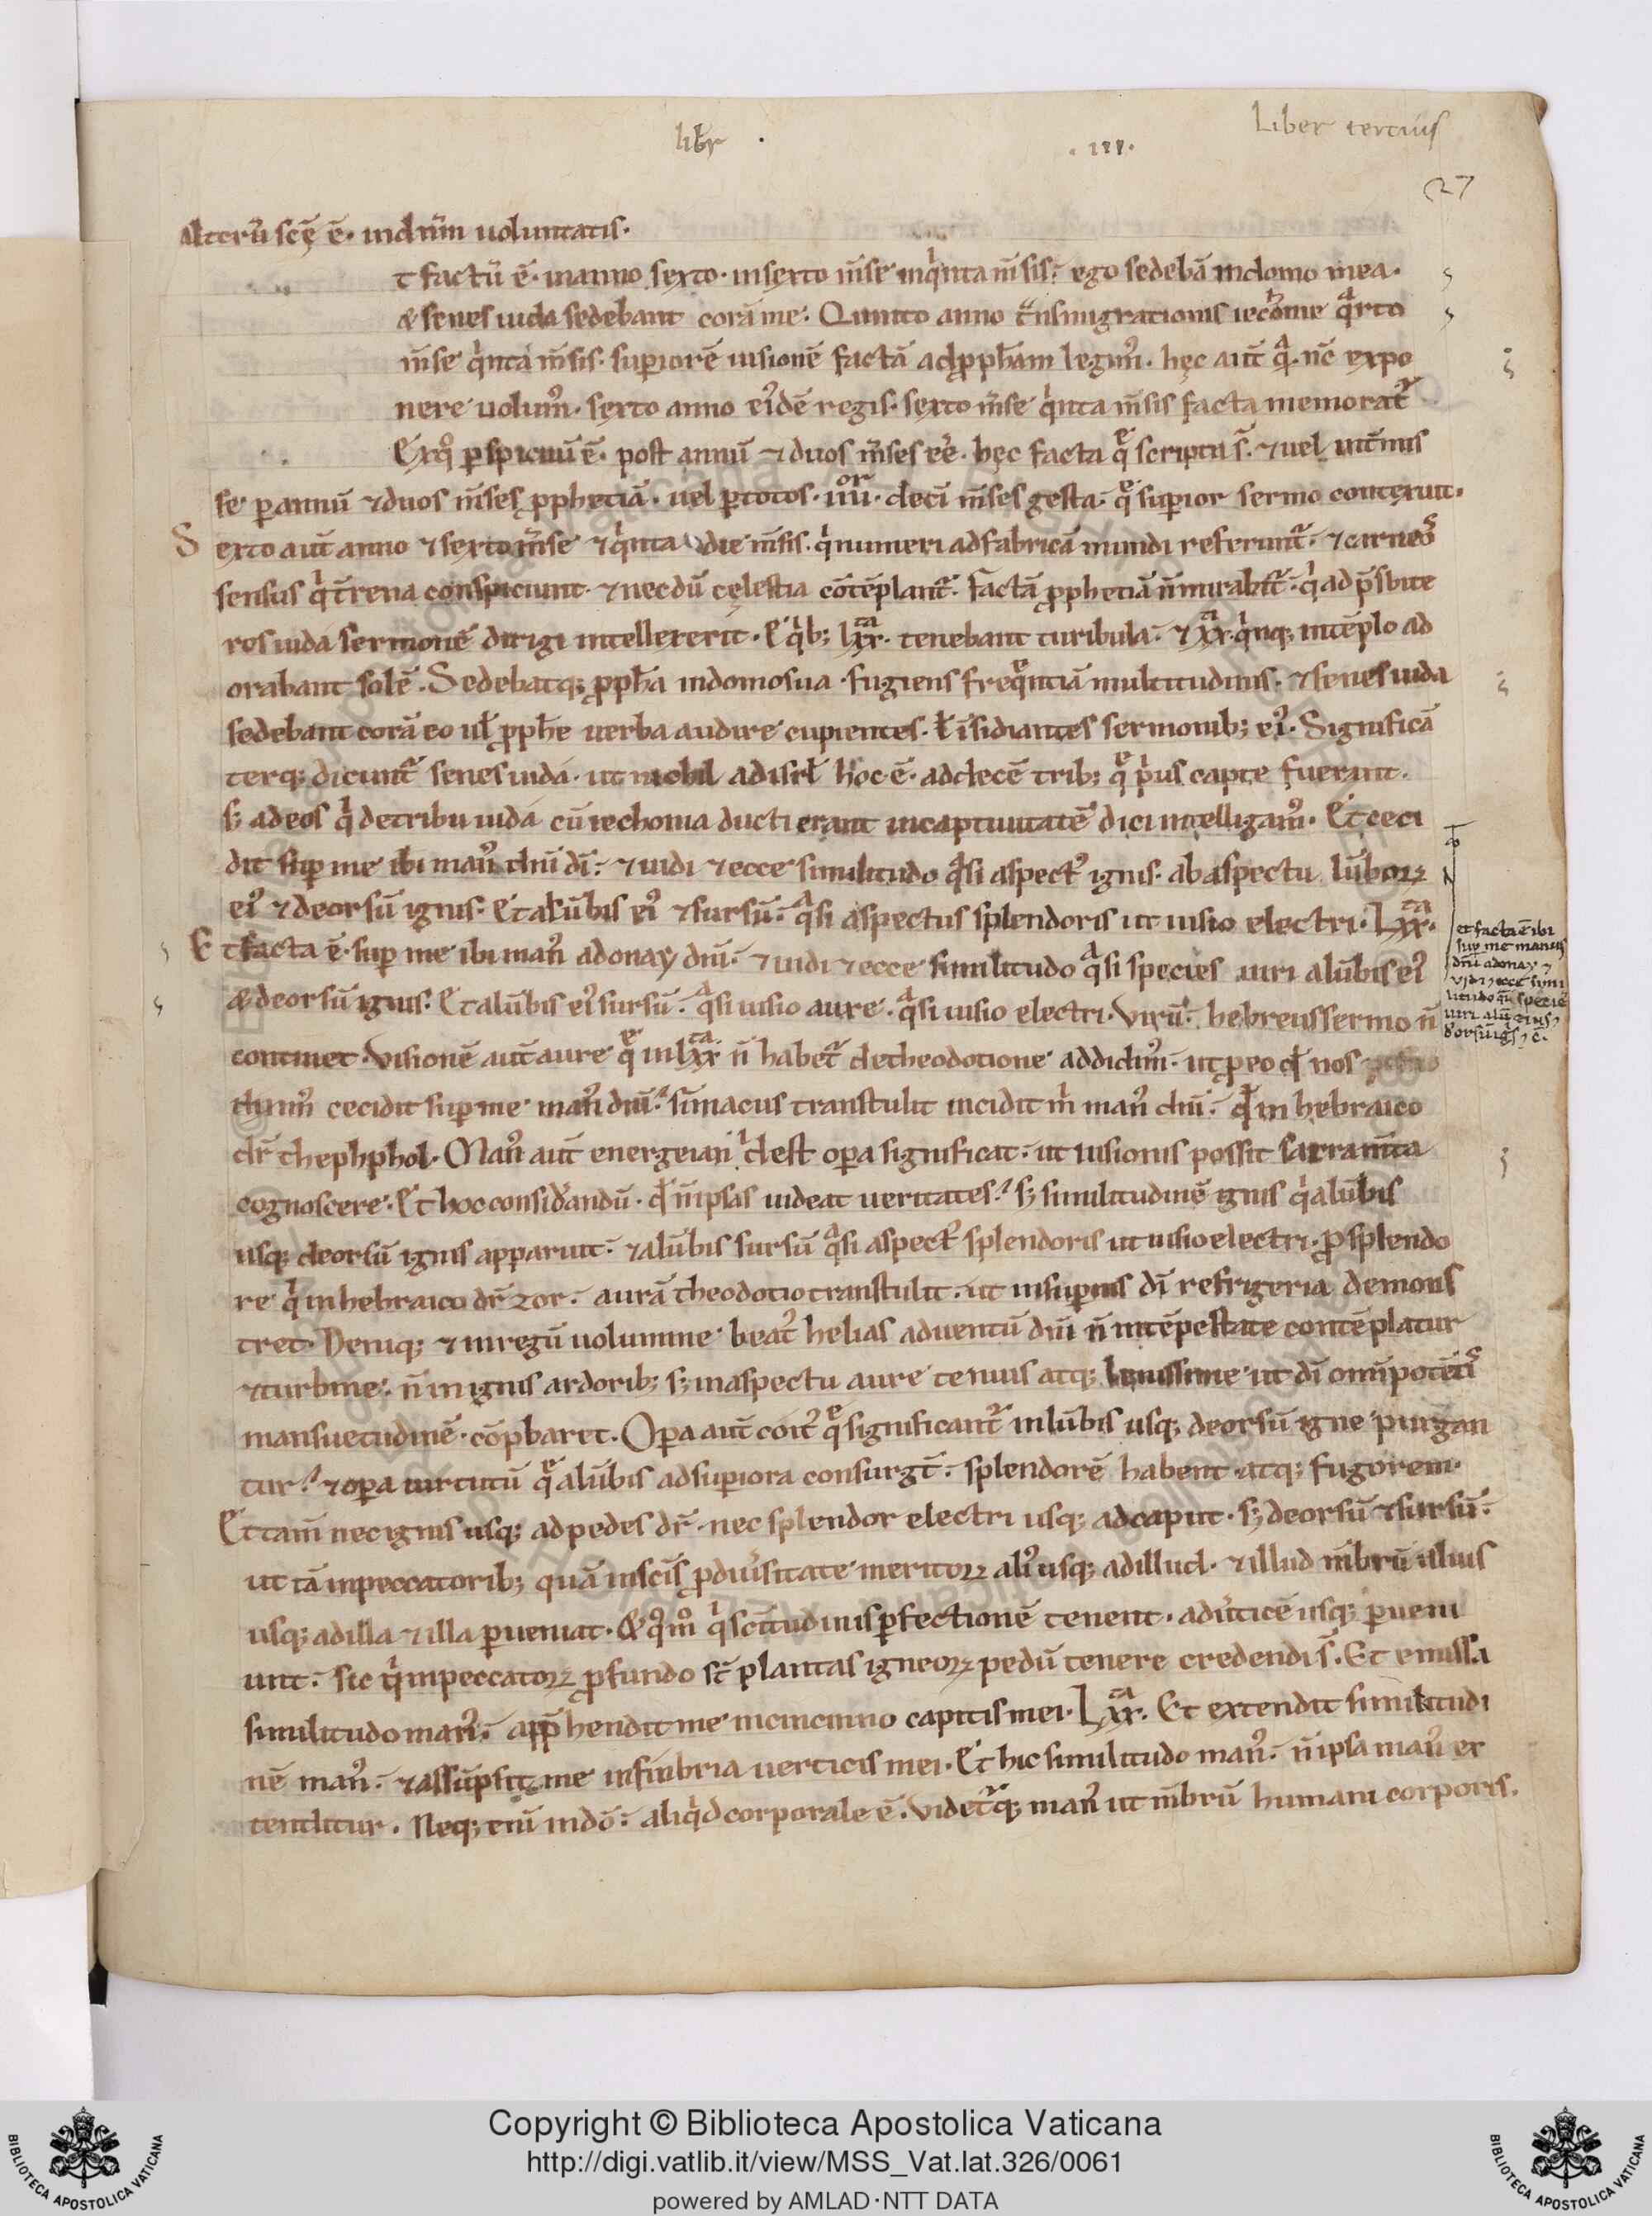 Liber tercius
libr . . III .
27
Alterū scę ē. indn̄m uoluntatis.
t factū ē. inanno sexto. insexto m̄se inqͥnta m̄sis. ego sedebā indomo mea.
& senes iuda sedebant corā me. Quinto anno tᷓnsmigrationis iechonie qᷓrto
m̄se qͥnta m̄sis. superiorē uisionē factā adꝓph̄am legim᾽. hęc aut̄ qᷓ. nc̄ expo
nere uolum᾽. sexto anno ei᾽dē regis. sexto m̄se qͥnta m̄sis facta memorat᾽
Exqͦ ꝑspicuū ē. post annū ⁊ duos m̄ses ee᾽. hęc facta qͤ scripta s̄. ⁊ uel uit̄mis
se ꝑannū ⁊duos m̄ses ꝓphetiā. uel ꝑtotos. iiii or. deci m̄ses gesta. qͤ supior sermo contexuit.
S exto aut̄ anno ⁊ sexto m̄se ⁊ qͥnta die m̄sis. qͥ numeri adfabricā mundi referunt᾽. ⁊ carneoˢ
sensus qͥ t̄rena conspiciunt. ⁊ necdū cęlestia cōtēplant᾽. factā ꝓphetiā n̄ mirabit᾽. qͥ adp̄sbite
ros iuda sermonē dirigi intellexerit. E qͥb; lxx ta. tenebant turibula. ⁊ xx ti. qͥnq; intēplo ad
orabant solē. Sedebatq; ꝓph̄a indomosua. fugiens freqͤntiā multitudinis. ⁊ senes iuda
sedebant corā eo ul̄ ꝓphe uerba audire cupientes. ł īsidiantes sermonib; ei᾽. Significā
terq; dicunt᾽ senes iuda. ut nichil adisrl̄ hoc ē. addecē trib; qͤ pͥus capte fuerant.
s; adeos qͥ detribu iuda cū iechonia ducti erant incaptiuitatē dici intelligam᾽. Et ceci
dit sup me ibi man᾽ dn̄i dī. ⁊ uidi ⁊ ecce similitudo qᷓsi aspect᾽ ignis. abaspectu lūboꝝ
ei᾽ ⁊ deorsū ignis. Et alūbis ei᾽ ⁊ sursū. qᷓsi aspectus splendoris ut uisio electri. Lxx ta.
E t facta ē. sup me ibi man᾽ adonay dn̄i. ⁊ uidi ⁊ ecce similitudo qᷓsi species uiri alūbis ei᾽
& deorsū ignis. Et alūbis ei᾽ sursū. qᷓsi uisio aure. qᷓsi uisio electri. Virū. hebreus sermo n̄
continet. Visionē aut̄ aure qͤ inlxx ta n̄ habet᾽ detheodotione addidim᾽. ut ꝓeo qđ nos
dixim᾽ cecidit sup me man᾽ dn̄i. simacus transtulit incidit m̄ man᾽ dn̄i. qđ in hebraico
dr̄ thephphol. Man᾽ aut̄ energeian idest opa significat. ut uisionis possit sacram̄ta
cognoscere. Et hoc considandū. qđ n̄ ipsas uideat ueritates. s; similitudinē ignis qͥ alūbis
usq; deorsū ignis apparuit. ⁊ alūbis sursū qᷓsi aspect᾽ splendoris ut uisio electri. ꝓ splendo
re qͥ in hebraico dr̄ zor. aurā theodotio transtulit. ut insupnis dī refrigeria demons
tret. Deniq; ⁊ inregū uolumine beat᾽ helias aduentū dn̄i n̄ intēpestate contēplatur
⁊ turbine. n̄ in ignis ardorib; s; inaspectu aure tenuis atq; lenissime ut dī omīpotētiˢ
mansuetudinē. cōpbaret. Opa aut̄ coit᾽ qͤ significant᾽ inlūbis usq; deorsū igne purgan
tur. ⁊ opa uirtutū qͤ alūbis adsupiora consurgt̄. splendorē habent atq; fugorem.
Et tam̄ nec ignis usq; ad pedes dr̄. nec splendor electri usq; adcaput. s; deorsū ⁊ sursū.
ut tā inpeccatorib; quā insc̄is ꝓdiu᾽sitate meritoꝝ ali᾽ usq; adillud. ⁊ illud m̄brū alius
usq; adilla ⁊ illa ꝑueniat. & qͦmͦ qͥ sc̄itudinis ꝑfectionē tenent. aduticē usq; ꝑueni
unt. sic qͥ inpeccatoꝝ ꝓfundo st̄ plantas igneoꝝ pedū tenere credendi s̄. Et emissa
similitudo man᾽. app̄hendit me incincinno capitis mei. Lxx ta. Et extendit similitudi
nē man᾽. ⁊ assūpsit me infinbria uerticis mei. Et hic similitudo man᾽. n̄ ipsa man᾽ ex
tenditur. Neq; enī indō. aliqͥd corporale ē. Videt᾽q; man᾽ ut m̄brū humani corporis.
et facta ē ibi
sup me manus
dn̄i adonay ⁊
vidi ⁊ ecce simi
litudo qᷓ speciē
uiri alū eius ⁊
dorsū igs ⁊ c̄.
Copyright © Biblioteca Apostolica Vaticana
http://digi.vatlib.it/view/MSS_Vat.lat.326/0061
powered by AMLAD·NTT DATA
BIBLIOTECA APOSTOLICA VATICANA
BIBLIOTECA APOSTOLICA VATICANA